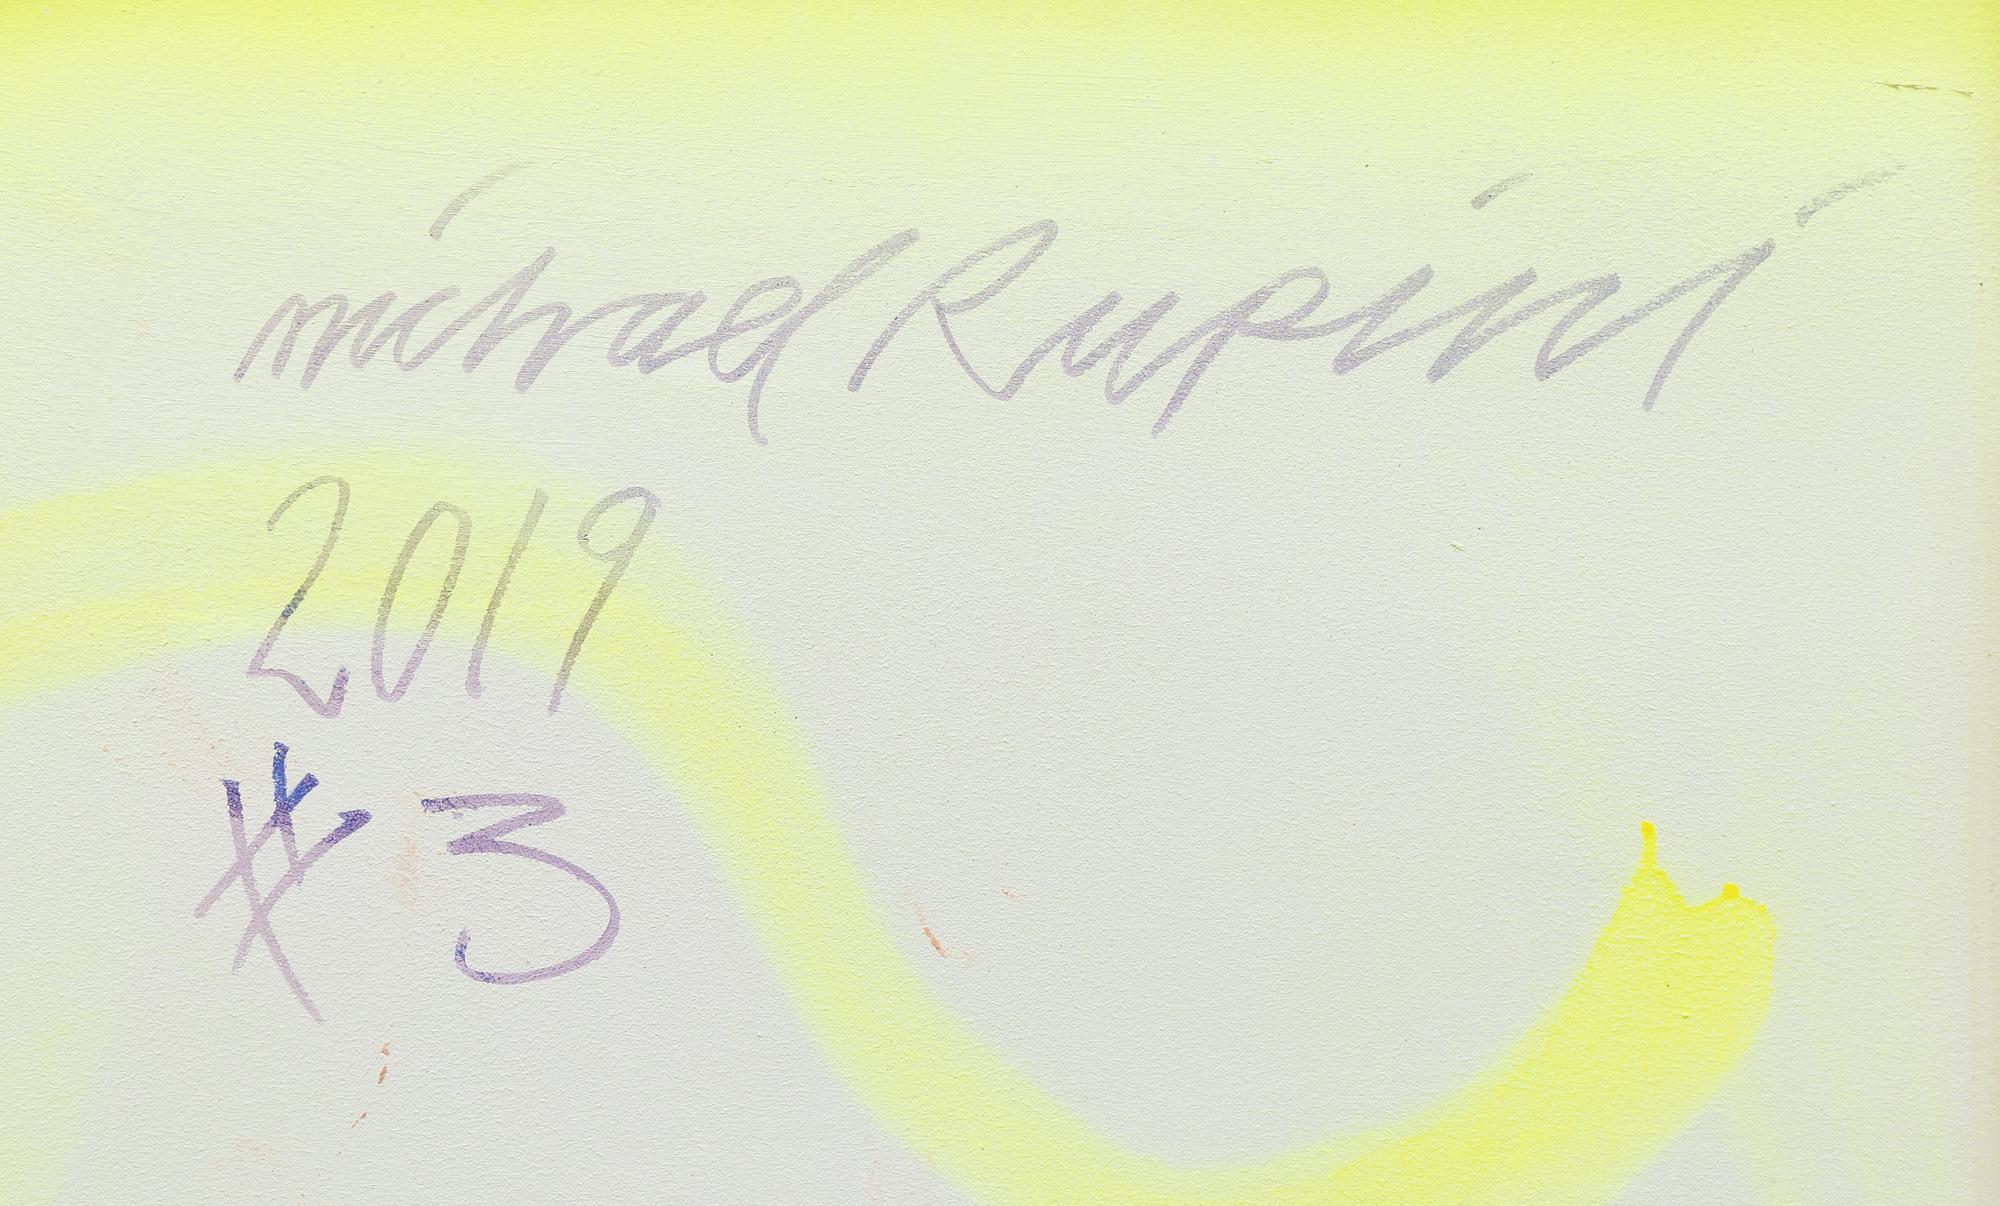 michael Rupini
2019
# 3